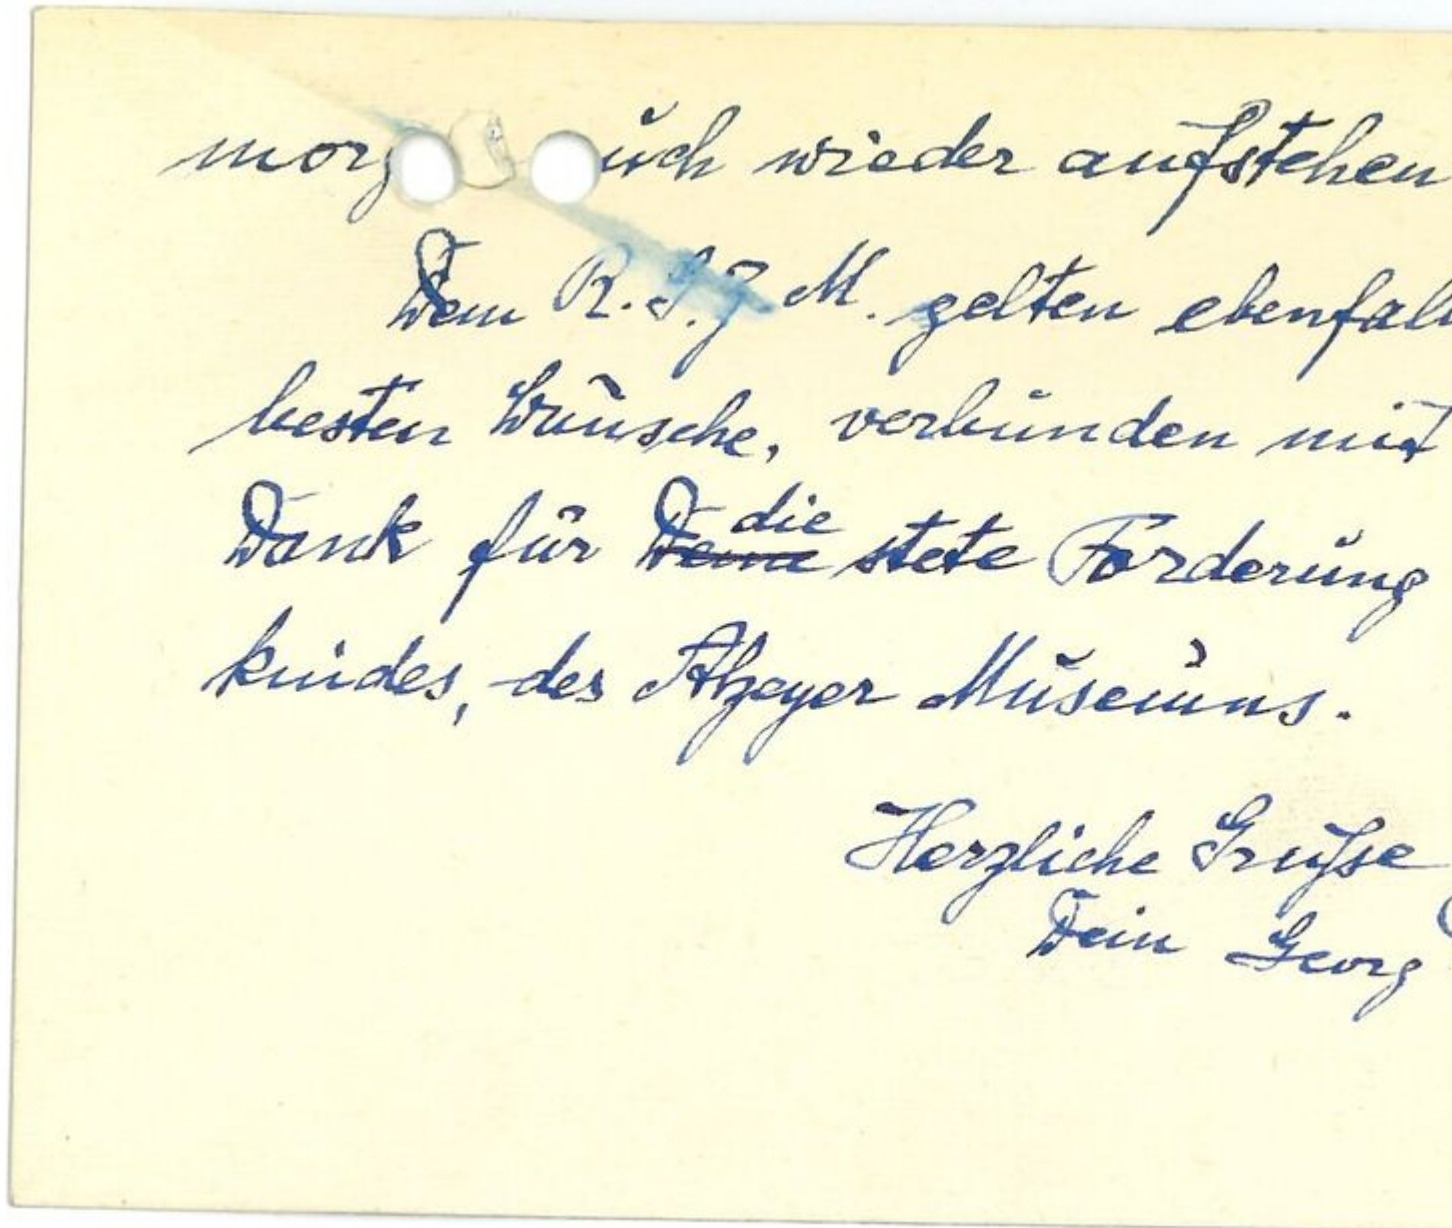 morg uch wieder aufstehen
Dem R.S.Z.M. gelten ebenfall
besten Wünsche, verbunden mit
Dank für die stete Förderung
kindes, des Alzeyer Museums.
Herzliche Grüße
Dein Georg